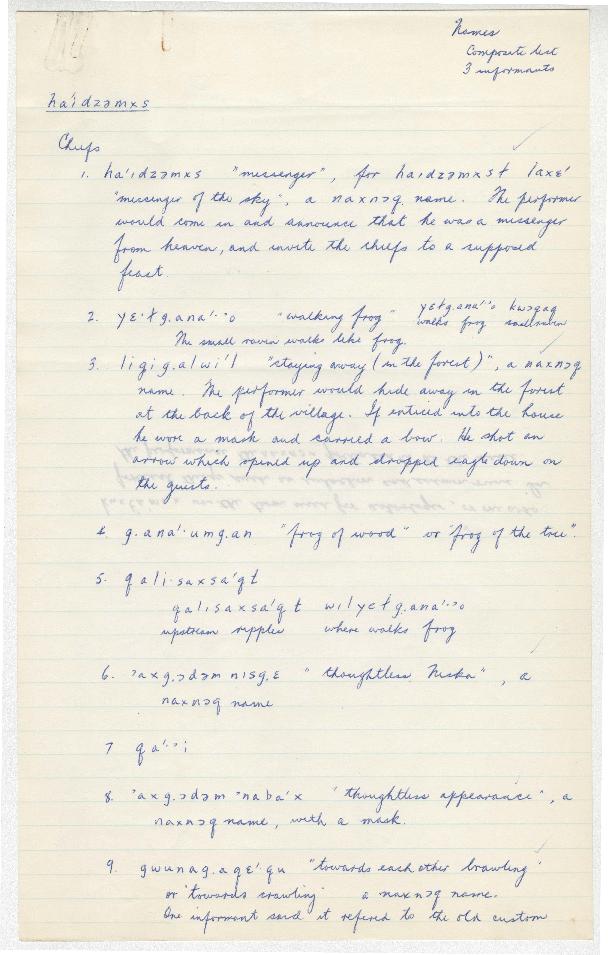 Names
Composite list
3 informants
ha'idzəmxs
Chiefs
1. ha'idzəmxs "messenger", for haidzəmxsɬ laxɛ'
"messenger of the sky", a naxnɔq name. The performer
would come in and announce that he was a messenger
from heaven, and invite the chiefs to a supposed
feast.
2. yɛ·ɬg.ana'·ɔ "walking frog" yɛɬg.ana'·ɔ kwɔqaq
The small raven walks like frog. walks frog small raven
3. ligig.alwi'l "staying away (in the forest)", a naxnɔq
name. The performer would hide away in the forest
at the back of the village. If enticed into the house
he wore a mask and carried a bow. He shot an
arrow which opened up and dropped eagle down on
the guests.
4. g.ana'·umg.an "frog of wood" or "frog of the tree".
5. qali·saxsa'qt
qalisaxsa'qt wilyɛɬg.ana'·ɔ
upstream ripples where walks frog
6. ʔaxg.ɔdəm nisg.ɛ "thoughtless Niska", a
naxnɔq name
7 qa'·ɔi
8. 'axg.ɔdəm 'naba'x "thoughtless appearance", a
naxnɔq name, with a mask.
9. gwunag.aqɛ'·qu "towards each other brawling"
or "towards crawling" a naxnɔq name.
One informant said it refered to the old custom